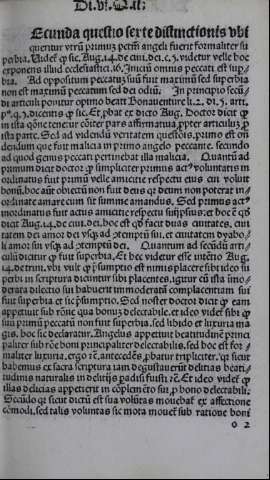 Di.vi. Q.ii:
Ecunda questio sexte distinctionis vbi
querunt vtrũ primuʒ petm̃ angeli fuerit formaliter su
perbia. Uidet̃ ꝙ sic. Aug. 14. de ciui. dei. c. 3. videtur velle hoc
exponens illud ecclesiastici. 16. Inicium omnis peccati est sup
bia. Ad oppositum peccatuʒ suũ fuit maximũ sed superbia
non est maximũ peccatum sed dei odiũ. In principio secũ
di articuli ponitur opimo beati Bonauenture li. 2. di. 5. arti.
q. 1. dicentis ꝙ sic. Et ꝓbat ex dicto Aug. Doctor dicit ꝙ
in ista q̃one tenetur cõiter pars affirmatiua ꝓpter articuluʒ ꝓ
ista parte. Sed ad videndũ veritatem questiõis. primo est on
dendum que fuit malicia in primo angelo peccante. secundo
ad quod genus peccati pertinebat illa malicia. Quantũ ad
primum dicit doctor ꝙ simpliciter primus actꝰ voluntatis in
ordinatus fuit primũ velle amicicie respectu eius cui voluit
bonũ. hoc aũt obiectũ non fuit deus qꝛ deum non poterat in
ordinate amare cum sit summe amandus. Sed primus actꝰ
inordinatus fuit actus amicicie respectu suiipsius: et hoc ẽ qd̃
dicit Aug. 14. de ciui. dei. hoc est qd̃ facit duas ciuitates, ciui
tatem dei amor dei vsqʒ ad ↄtemptũ sui. et ciuitatem dyabo
li amor sui vsqʒ ad ↄtemptũ dei. Quantum ad secũdũ arti
culũ dicitur ꝙ fuit superbia. Et hec videtur esse intẽtio Aug.
14. de trini. vbi vult ꝙ p̃sumptio est nimis placere sibi ideo su
perbi in scriptura dicuntur sibi placentes. igitur cũ ista imo
derata dilectio sui habuerit immoderatã complacentiam sui
fuit superbia et sic p̃sumptio. Sed noster doctor dicit ꝙ eam
appetiuit sub rõne qua bonuʒ delectabile. et ideo videt̃ sibi ꝙ
suũ primũ peccatũ non fuit superbia. sed libido et luxuria ma
gis. hoc sic declaratur. Angelus appetiuit beatitudinẽ princi
paliter sub rõne boni principaliter delectabilis. sed hoc est for
maliter luxuria. ergo rẽ. antecedẽs ꝓbatur tripliciter. qꝛ sicut
habemus ex sacra scriptura iam degustauerũt delicias beati
tudinis naturalis in delicijs paradisi fuistī rẽ. Et ideo videt̃ ꝙ
illas delicias appetierit in cõplemẽto sui pro bono delectabili.
Secũdo qꝛ sicut dictũ est sua volũtas mouebat̃ ex affectione
cõmodi. sed talis voluntas sic mota mouet̃ sub ratione boni
o 2